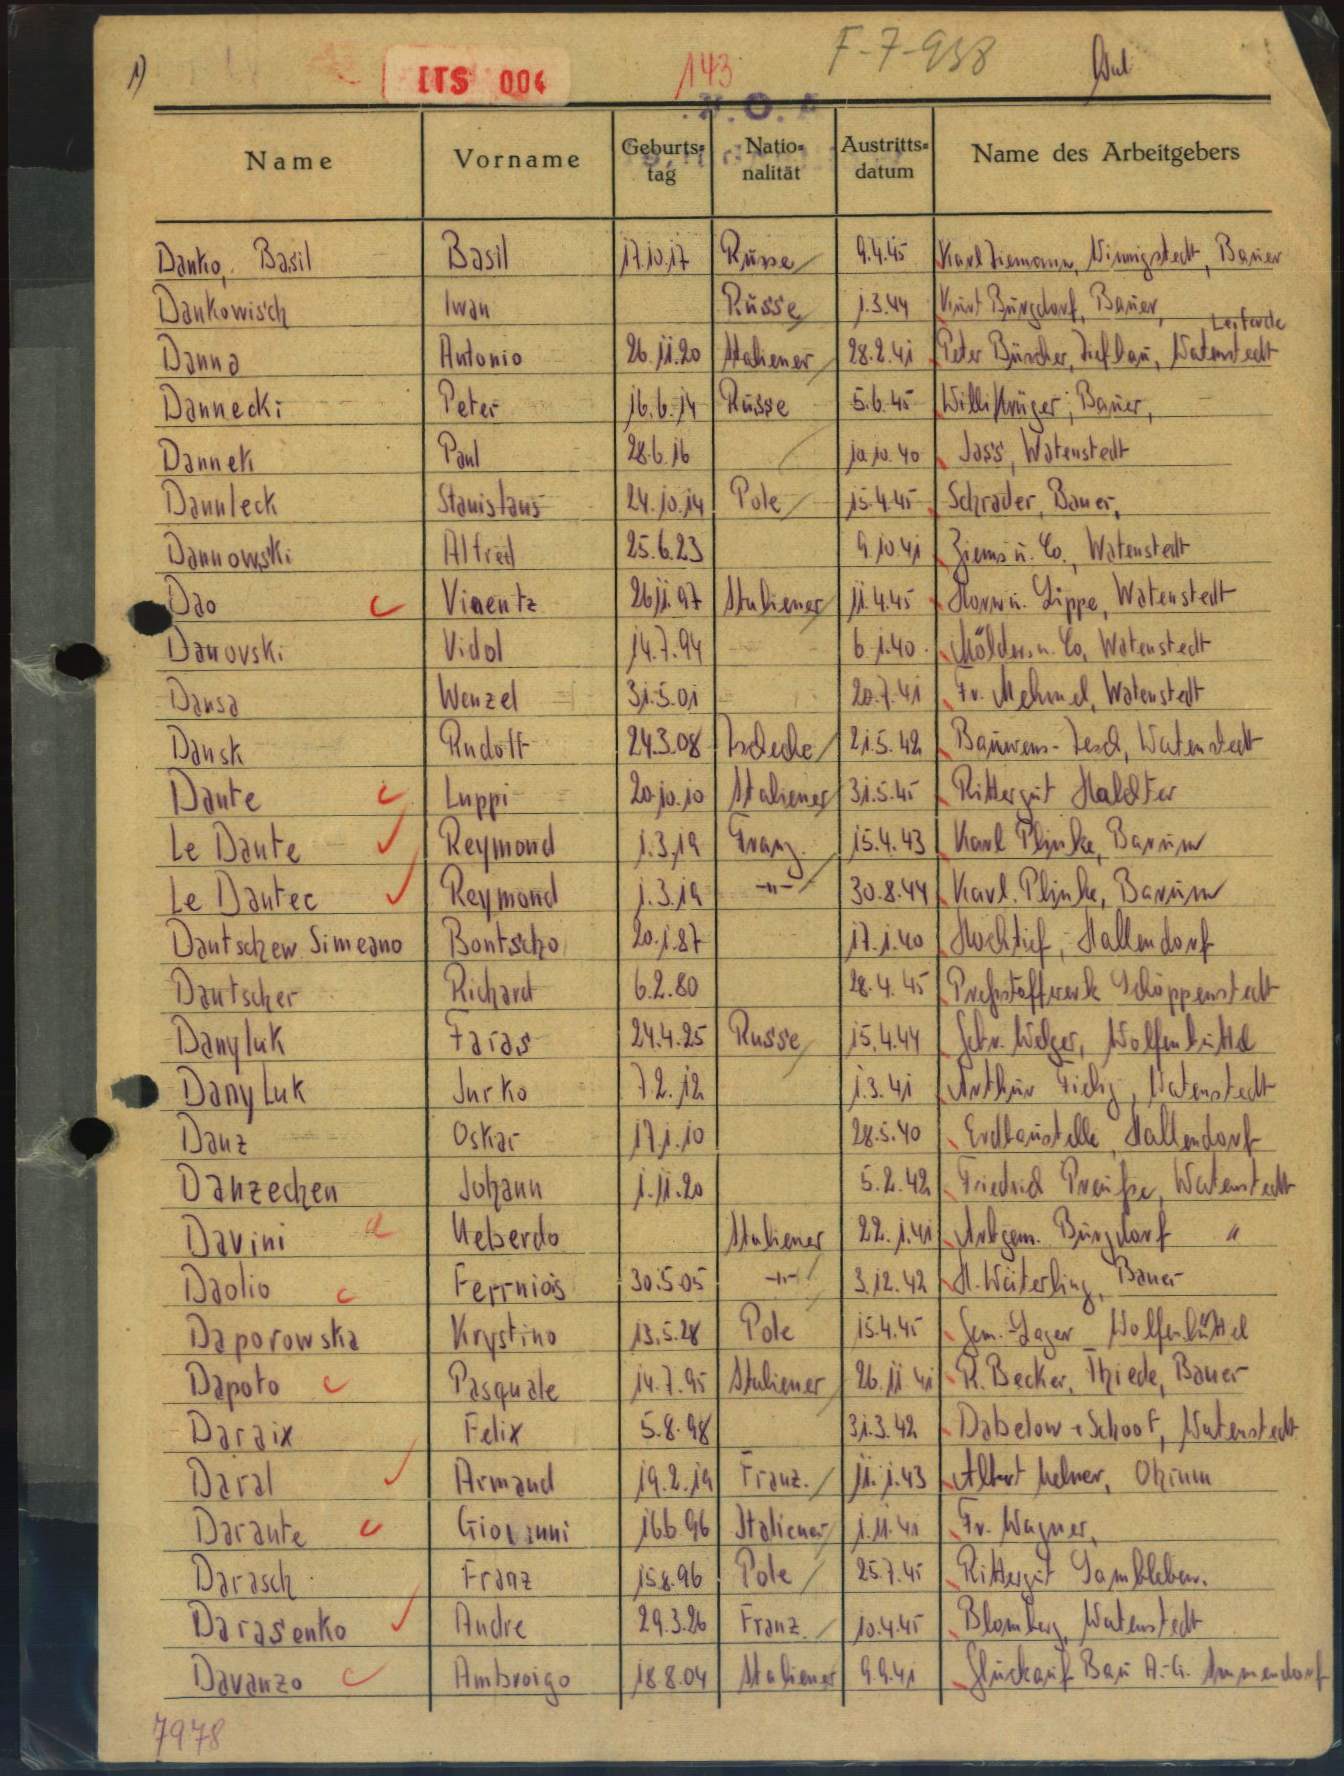 1) ITS 004 143 F-7-938
Name Vorname Geburts=tag Natio=nalität Austritts=datum Name des Arbeitgebers
Danko, Basil Basil 17.10.17 Russe 9.4.45 Karl Ziemann, Winnigstedt, Bauer
Dankowisch Iwan Russe 1.3.44 Kurt Burgdorf, Bauer, Leiferde
Danna Antonio 26.11.20 Italiener 28.2.41 Peter Büscher, Tiefbau, Watenstedt
Dannecki Peter 16.6.14 Russe 5.6.45 Willi Krüger, Bauer,
Dannek Paul 28.6.16 10.10.40 Jass, Watenstedt
Dannleck Stanislaus 24.10.14 Pole 15.4.45 Schrader, Bauer,
Dannowski Alfred 25.6.23 9.10.41 Ziems u. Co., Watenstedt
Dao Vicentz 26.11.97 Italiener 11.4.45 Lippe, Watenstedt
Danovski Vidol 14.7.94 6.1.40 Mölders u. Co, Watenstedt
Dansa Wenzel 31.5.01 20.7.41 Fr. Mehmel, Watenstedt
Dansk Rudolf 24.3.08 Tscheche 21.5.42 Watenstedt
Dante Luppi 20.10.10 Italiener 31.5.45 Rittergut
Le Dante Reymond 1.3.19 Franz. 15.4.43 Karl Plinke, Barum
Le Dantec Reymond 1.3.19 -"- 30.8.44 Karl Plinke, Barum
Dantschew Simeano Bontscho 20.1.87 17.1.40 Hochtief, Hallendorf
Dantscher Richard 6.2.80 28.4.45 Preßstoffwerk Schöppenstedt
Danyluk Faras 24.4.25 Russe 15.4.44 Gebr. Welger, Wolfenbüttel
Danyluk Jurko 7.2.12 1.3.41 Arthur Watenstedt
Danz Oskar 17.1.10 28.5.40 Erdbaustelle, Hallendorf
Danzechen Johann 1.11.20 5.2.42 Friedrich Preuße, Watenstedt
Davini Ueberdo Italiener 22.1.41 Arbgem. Burgdorf "
Daolio Ferrniois 30.5.05 -"- 3.12.42 H. Wüterling, Bauer
Daporowska Krystino 13.5.28 Pole 15.4.45 Gem.-Lager Wolfenbüttel
Dapoto Pasquale 14.7.95 Italiener 26.11.41 R. Becker, Thiede, Bauer
Daraix Felix 5.8.98 31.3.42 Dabelow + Schoof, Watenstedt
Daral Armand 19.2.19 Franz. 11.1.43 Albert Ohrum
Darante Giovanni 16.6.96 Italiener 1.11.41 Fr. Wagner,
Darasch Franz 15.8.96 Pole 25.7.45 Rittergut Sambleben.
Darasenko Andre 29.3.26 Franz. 10.4.45 Blomberg, Watenstedt
Davanzo Ambroigo 18.8.04 Italiener 9.9.41 Glückauf Bau A.-G. Immendorf
7978